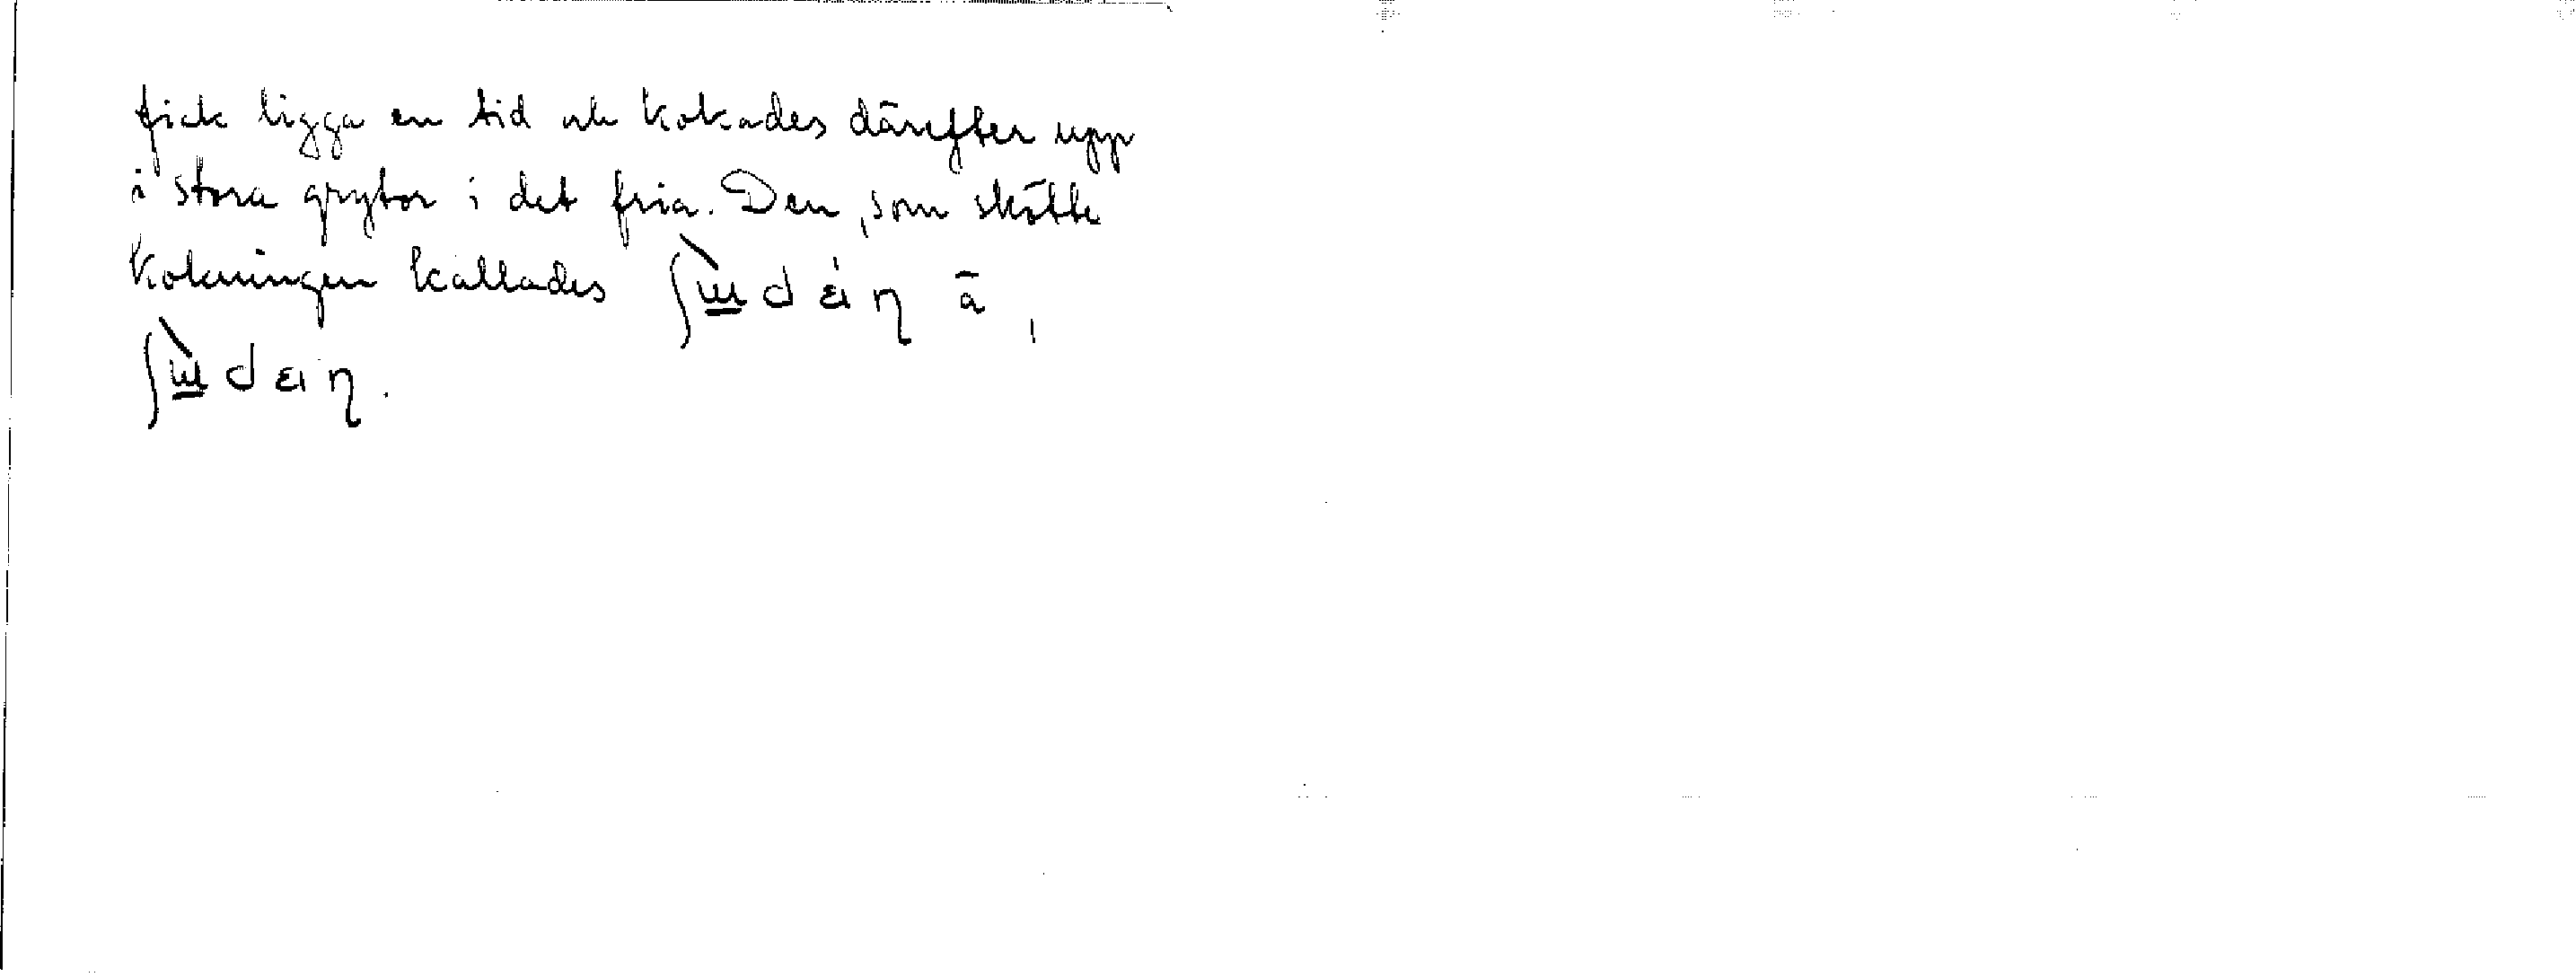 fick ligga en tid och kokades därefter upp
i stora grytor i det fria. Den, som skötte
kokningen kallades ʃɯ̀dɛiŋ ā,
ʃɯ̀dɛiŋ.